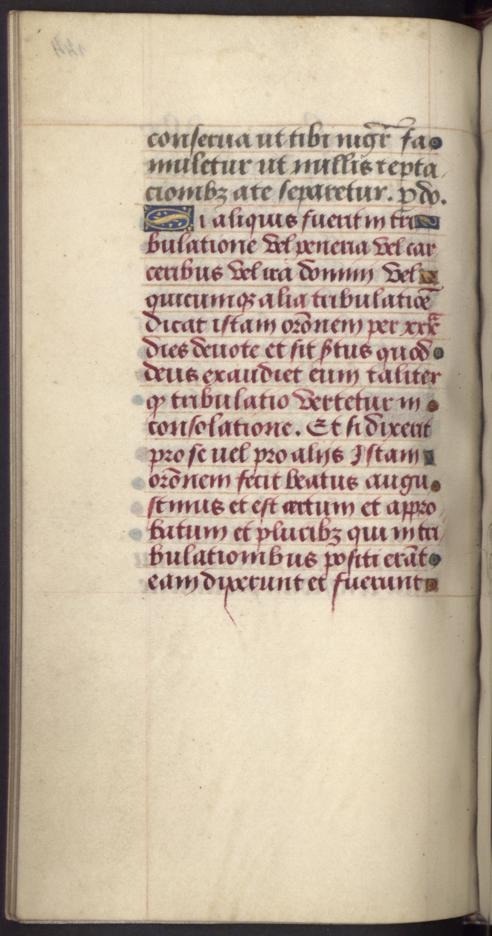 conserua ut tibi iugr̄ fa
muletur ut nullis tepta
cionibꝫ a te separetur. p do.
Si aliquis fuerit in tri
bulatione vel peneria vel car
ceribus vel ira domini vel
quicumqꝫ alia tribulatioē
dicat istam orōnem per xxx
dies deuote et sit s̄tus quod
deus exaudiet eum taliter
ꝙ tribulatio vertetur in
consolatione. Et si dixerit
pro se uel pro alijs Istam
orōnem fecit beatus augu
stinus et est certum et appro
batum et pluribꝫ qui in tri
bulationibus positi erāt
eam dixerunt et fuerunt